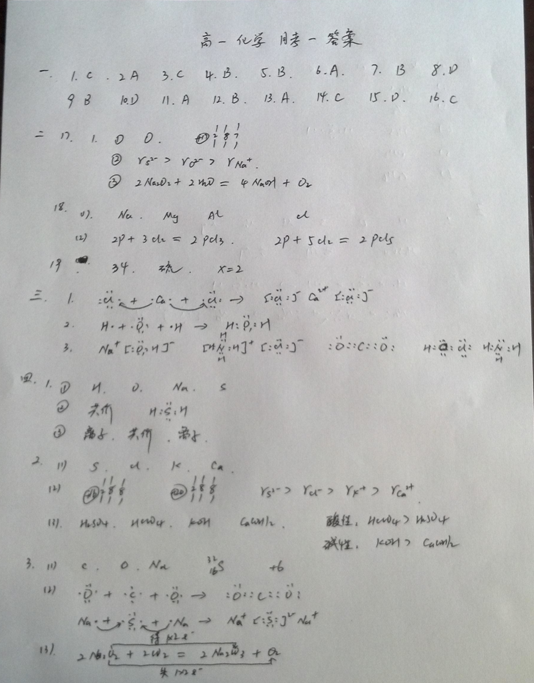 高一化学 月考一答案
一. 1. C. 2 A 3. C 4. B. 5. B. 6. A. 7. B 8. D
9 B 10. D 11. A 12. B. 13. A. 14. C 15. D. 16. C
二 17. 1. O.
② rS²⁻ > rO²⁻ > rNa⁺.
③ 2Na₂O₂ + 2H₂O = 4NaOH + O₂
18. (1). Na. Mg Al Cl
(2) 2P + 3Cl₂ = 2PCl₃. 2P + 5Cl₂ = 2PCl₅
19. 34. 硫. x=2
三. 1. :Cl· + ·Ca· + ·Cl: → [:Cl:]⁻ Ca²⁺ [:Cl:]⁻
2. H· + ·O· + ·H → H:O:H
3. Na⁺[:O:H]⁻ [H:N:H]⁺[:Cl:]⁻ :O::C::O: H:O:Cl: H:N:H
四. 1. ① H. O. Na. S
② 共价 H:S:H
③ 离子. 共价. 离子.
2. (1) S. Cl. K. Ca.
(2) rS²⁻ > rCl⁻ > rK⁺ > rCa²⁺
(3). H₂SO₄. HClO₄. KOH Ca(OH)₂. 酸性. HClO₄ > H₂SO₄
碱性. KOH > Ca(OH)₂
3. (1) C. O. Na ³²₁₆S +6
(2) ·O· + ·C· + ·O· → :O::C::O:
Na· + ·S· + ·Na → Na⁺[:S:]²⁻Na⁺
得 1×2e⁻
(3). 2Na₂O₂ + 2CO₂ = 2Na₂CO₃ + O₂
失 1×2e⁻